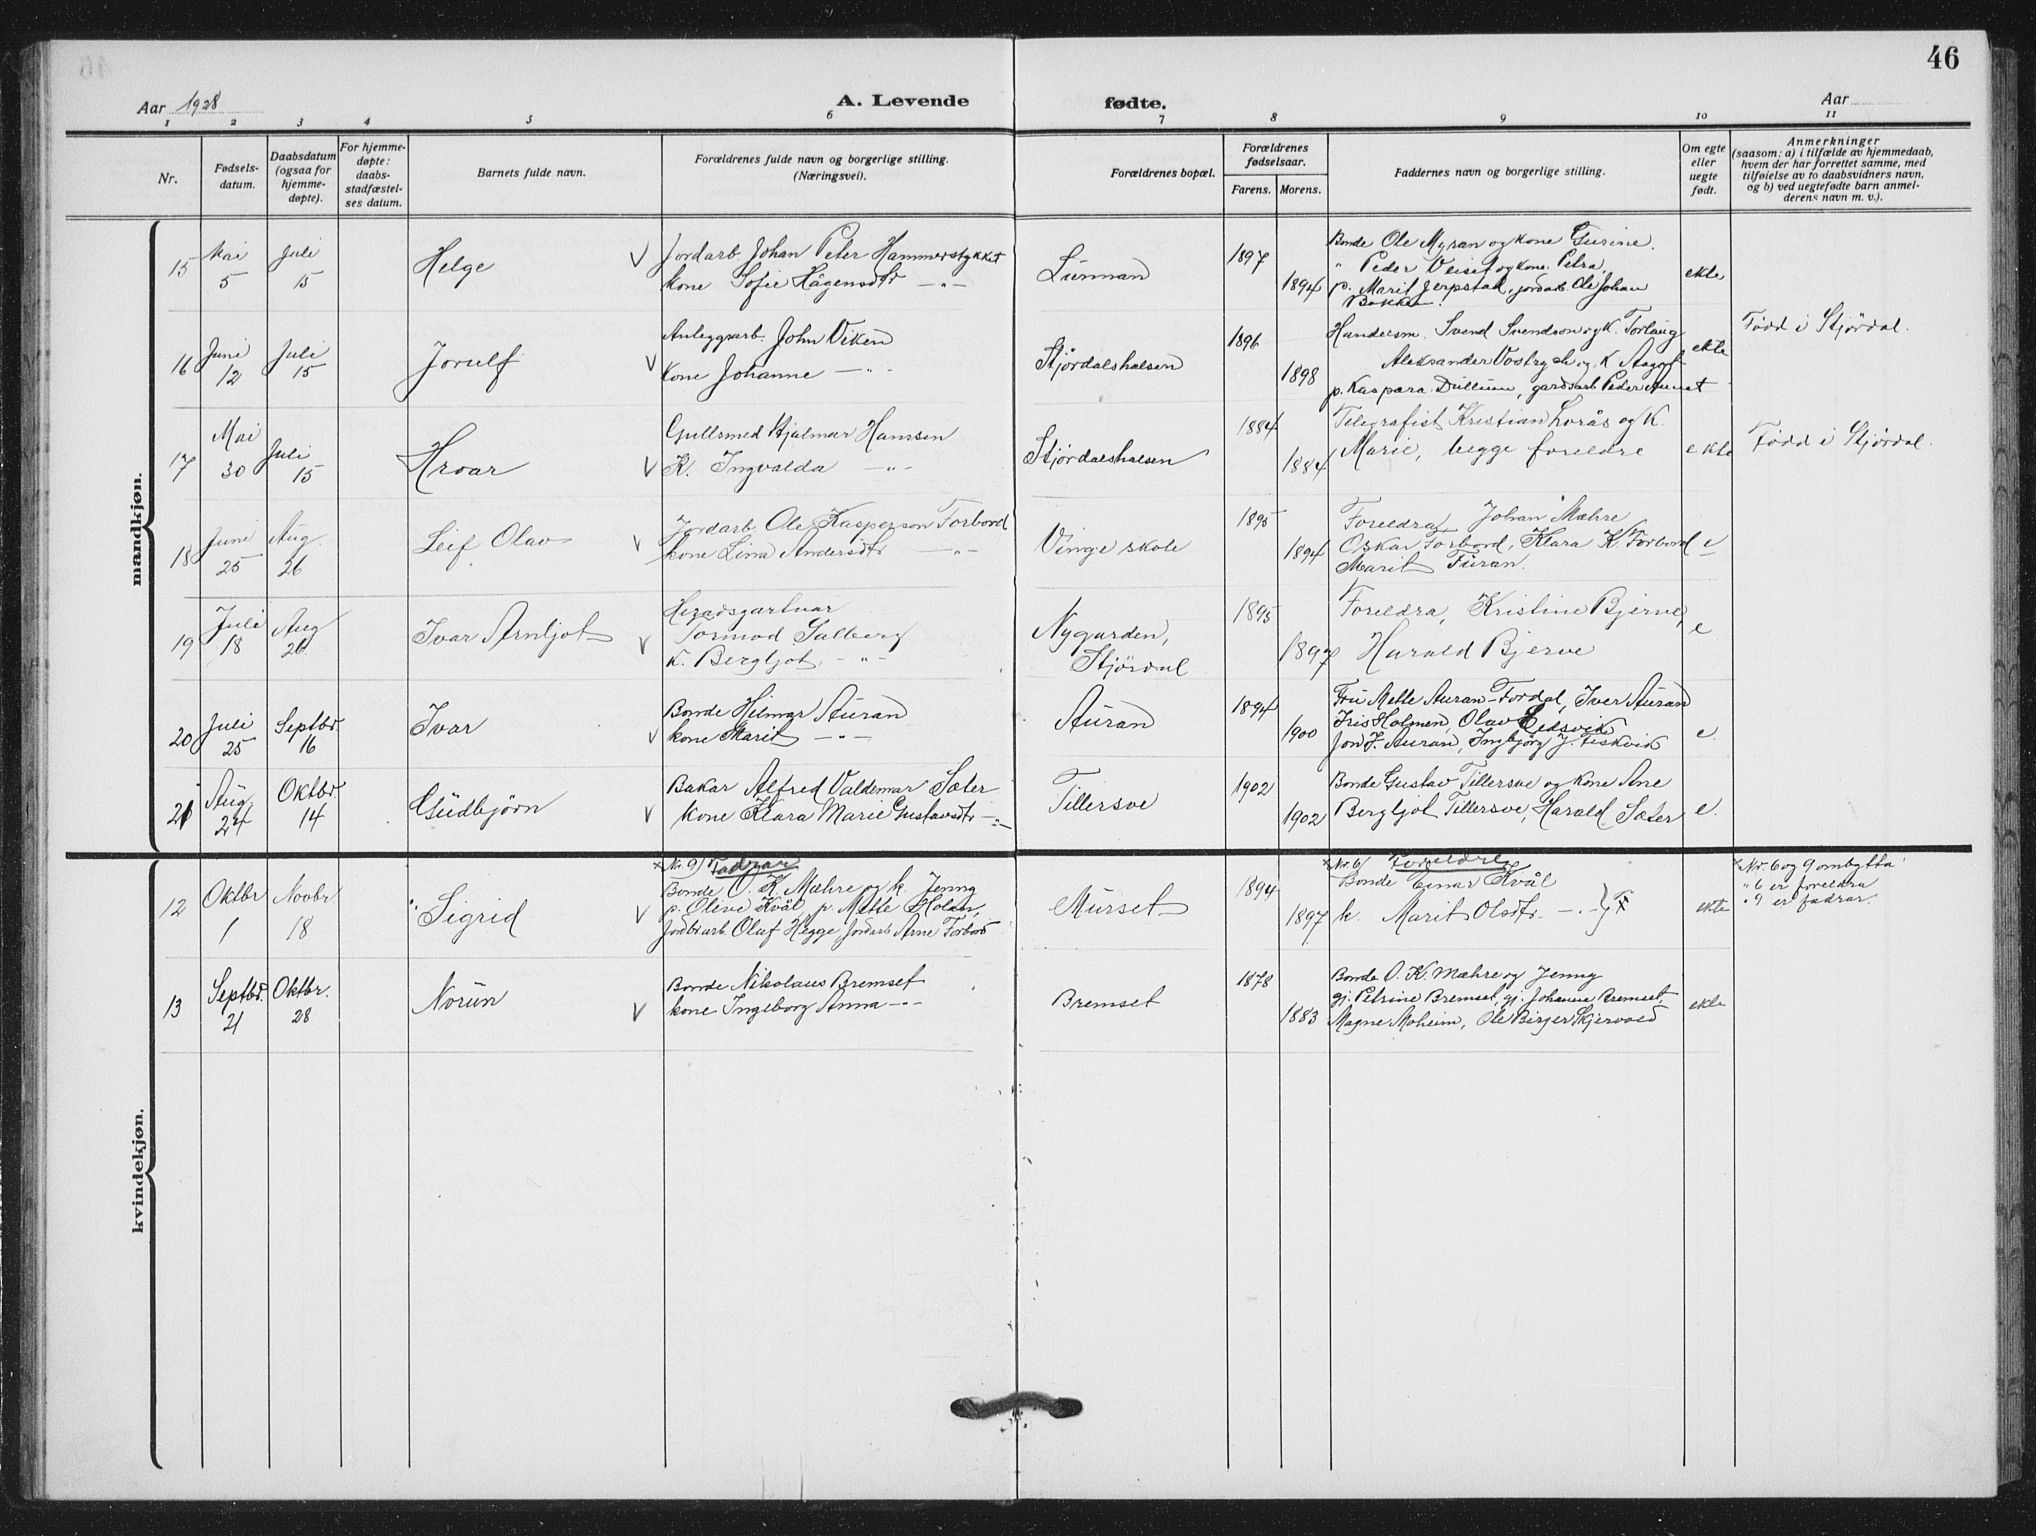 46
Aar 1928
A. Levende
fødte.
Aar
1 2 3 4 5 6 7 8 9 10 11
Nr.
Fødsels-
datum.
Daabsdatum
(ogsaa for
hjemme-
døpte).
For hjemme-
døpte:
daabs-
stadfæstel-
ses datum.
Barnets fulde navn.
Forældrenes fulde navn og borgerlige stilling.
(Næringsvei).
Forældrenes bopæl.
Forældrenes
fødselsaar.
Farens. Morens.
Faddernes navn og borgerlige stilling.
Om egte
eller
uegte
født.
Anmerkninger
(saasom: a) i tilfælde av hjemmedaab,
hvem der har forrettet samme, med
tilføielse av to daabsvidners navn,
og b) ved uegtefødte barn anmel-
derens navn m. v.).
mandkjøn.
15
Mai
5
Juli
15
Helge
Jordarb. Johan Peter Hammerstykket
kone Sofie Hågensdtr -"-
Lunnan
1897
1894
Bonde Ole Myran og kone Gurine.
" Peder Veiset og kone Petra.
p. Marit Jerpstad, jordarb Ole Johan
Bakken.
ekte
16
Juni
12
Juli
15
Jorulf
Anleggsarb. John Viken
kone Johanne -"-
Stjördalshalsen
1896
1898
Handelsm. Svend Svendson og K. Torlaug
Aleksander Vostryeh og K Aagot
p. Kaspara Dullum, gardsarb Peder
ekte
Född i Stjördal.
17
Mai
30
Juli
15
Hroar
Gullsmed Hjalmar Hanssen
K. Ingvalda -"-
Stjördalshalsen
1884
1884
Telegrafist Kristian Lorås og K.
Marie, begge foreldre
ekte
Född i Stjördal.
18
Juni
25
Aug.
26
Leif Olav
Jordarb. Ole Kasperson Forbord
kone Lina Andersdtr -"-
Vinge skole
1895
1894
Foreldra, Johan Mæhre
Oskar Forbord, Klara K. Forbord
Marit Furan.
e
19
Juli
18
Aug
26
Ivar Arnljot
Heradsgartnar
Tormod Salberg
K. Bergljot -"-
Nygarden,
Stjördal
1895
1897
Foreldra, Kristine Bjerve,
Harald Bjerve
e
20
Juli
25
Septbr.
16
Ivar
Bonde Hilmar Auran
kone Marit -"-
Auran
1894
1900
Fru Mette Auran-Fordal, Iver Auran
Iris Holmen, Olav Eidsvik
Jon J. Auran, Ingbjörg J. Fiskvik
e.
21
Aug.
24
Oktbr.
14
Gudbjörn
Bakar Alfred Valdemar Sæter
kone Klara Marie Gustavsdtr -"-
Tillersve
1902
1902
Bonde Gustav Tillersve og kone Ane
Bergljot Tillersve, Harald Sæter
e.
kvindekjøn.
12
Oktbr
1
Novbr
18
Sigrid
x Nr. 9) Fadrar
Bonde O. K. Mæhre og k. Jenny
p. Olive Kvål p. Mette Holan,
Jordbrarb. Oluf Hegge, Jordarb Arne Forbord
Murset
1894
1897
x Nr. 6) Foreldre
Bonde Einar Kvål
k. Marit Olsdtr. -"- } x
ekte
x Nr 6 og 9 ombytta
" 6 er foreldra
" 9 er fadrar.
13
Septbr.
21
Oktbr.
28
Norun
Bonde Nikolaus Bremset
kone Ingeborg Anna -"-
Bremset
1878
1883
Bonde O. K. Mæhre og Jenny
gj. Petrine Bremset, gj. Johanna Bremset,
Magne Moheim, Ole Birger Skjervold
ekte